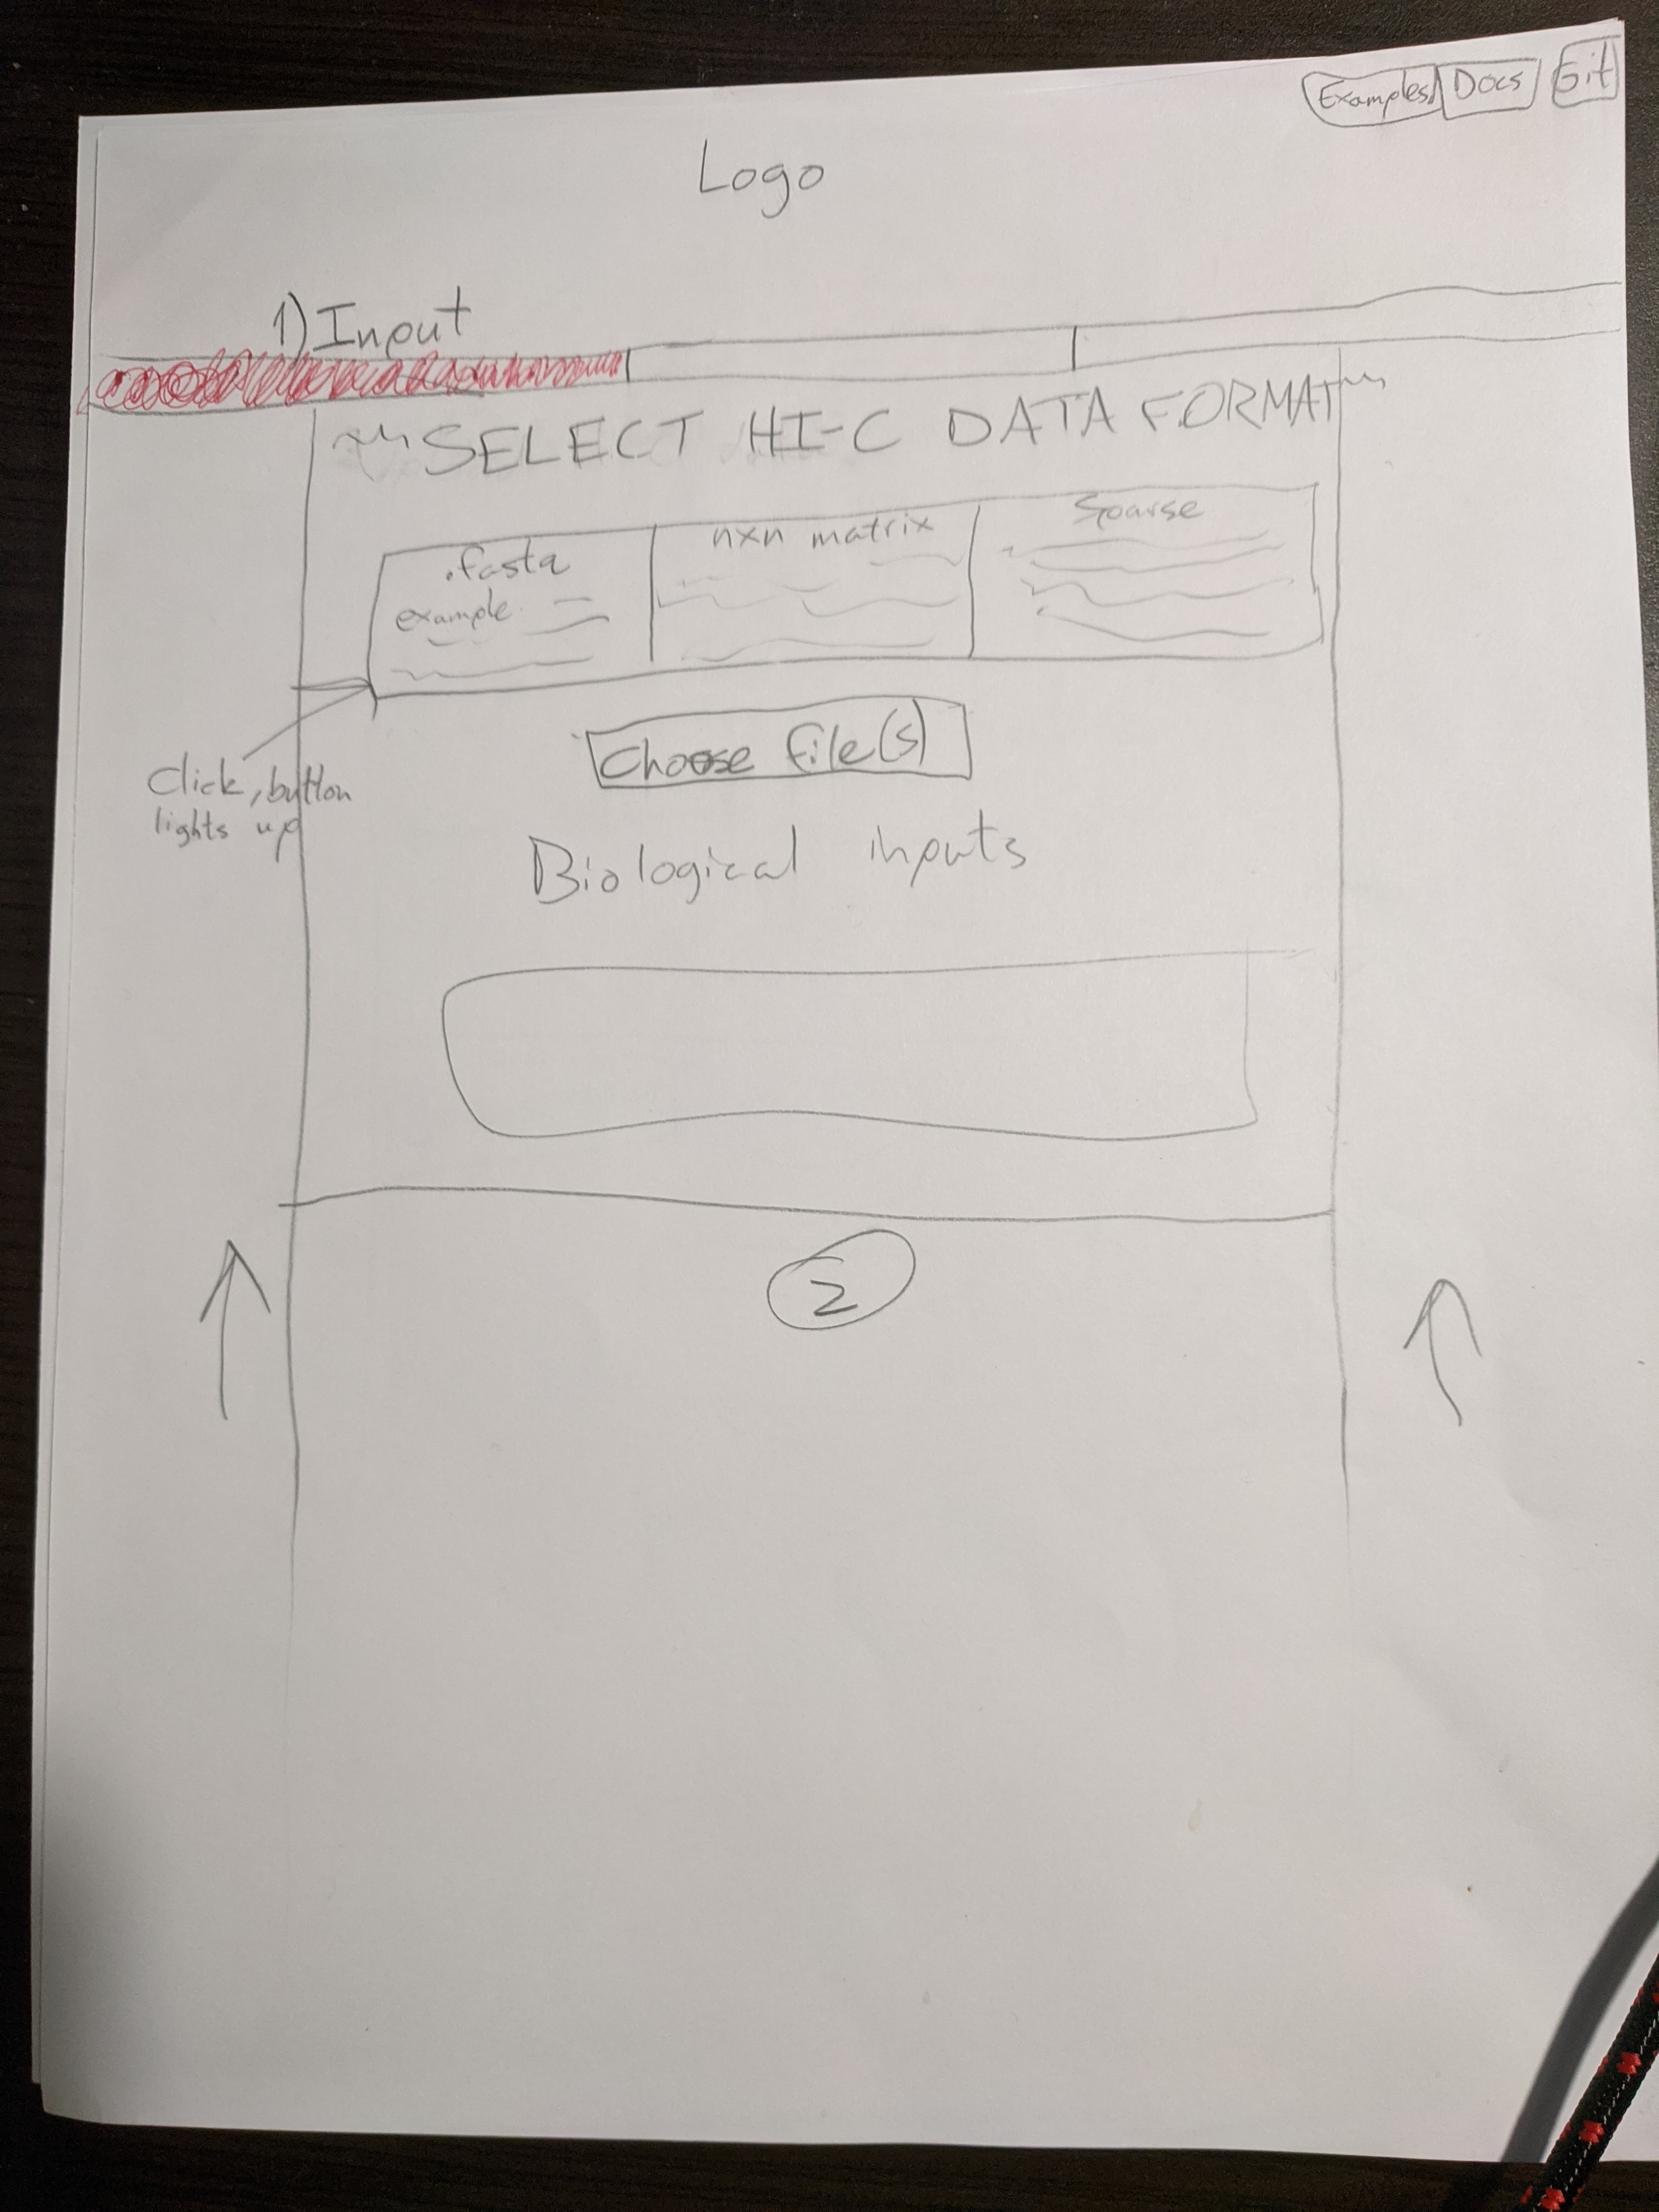 Examples Docs Git
Logo
1) Input
~SELECT HI-C DATA FORMAT~
.fastq nxn matrix Sparse
example
Choose file(s)
Click, button
lights up
Biological inputs
2